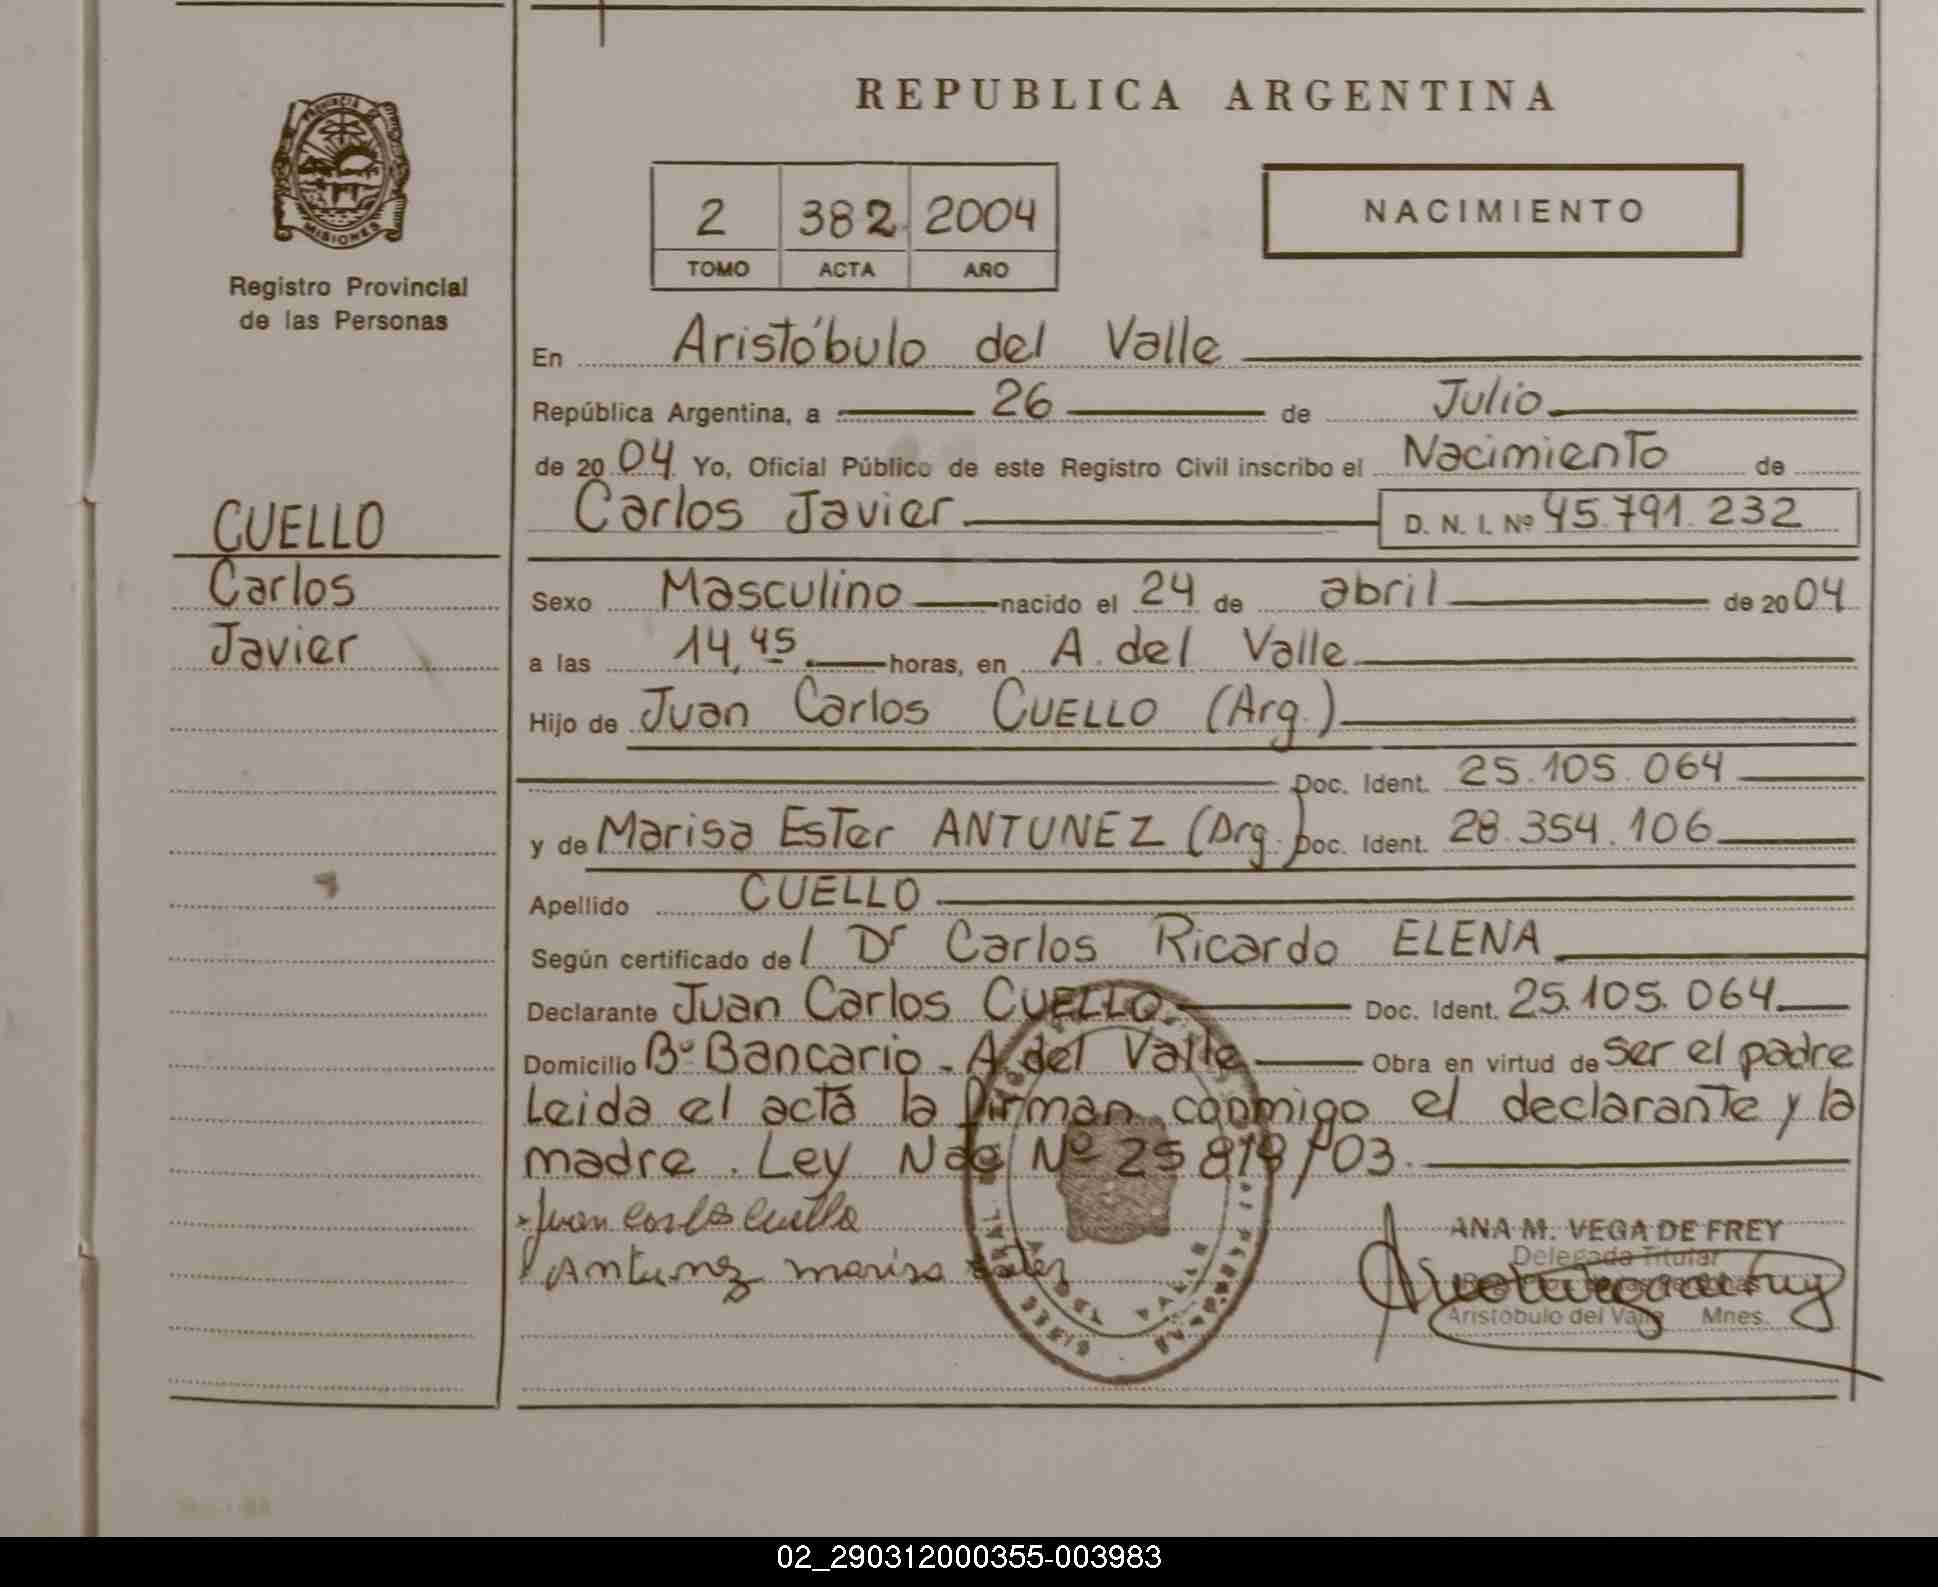 REPUBLICA ARGENTINA
PROVINCIA
MISIONES
Registro Provincial
de las Personas
2 382 2004
TOMO ACTA AÑO
NACIMIENTO
En Aristóbulo del Valle
República Argentina, a 26 de Julio
de 2004 Yo, Oficial Público de este Registro Civil inscribo el Nacimiento de
Carlos Javier D. N. I. Nº 45.791.232
CUELLO
Carlos
Javier
Sexo Masculino nacido el 24 de abril de 2004
a las 14,45 horas, en A. del Valle
Hijo de Juan Carlos CUELLO (Arg.)
Doc. Ident. 25.105.064
y de Marisa Ester ANTUNEZ (Arg.) Doc. Ident. 28.354.106
Apellido CUELLO
Según certificado del Dr Carlos Ricardo ELENA
Declarante Juan Carlos CUELLO Doc. Ident. 25.105.064
Domicilio Bº Bancario - A. del Valle Obra en virtud de ser el padre
Leida el acta la firman conmigo el declarante y la
madre. Ley Nac Nº 25.819/03.
Juan Carlos Cuello
Antunez marisa ester
ANA M. VEGA DE FREY
Delegada Titular
Aristóbulo del Valle Mnes.
02_290312000355-003983